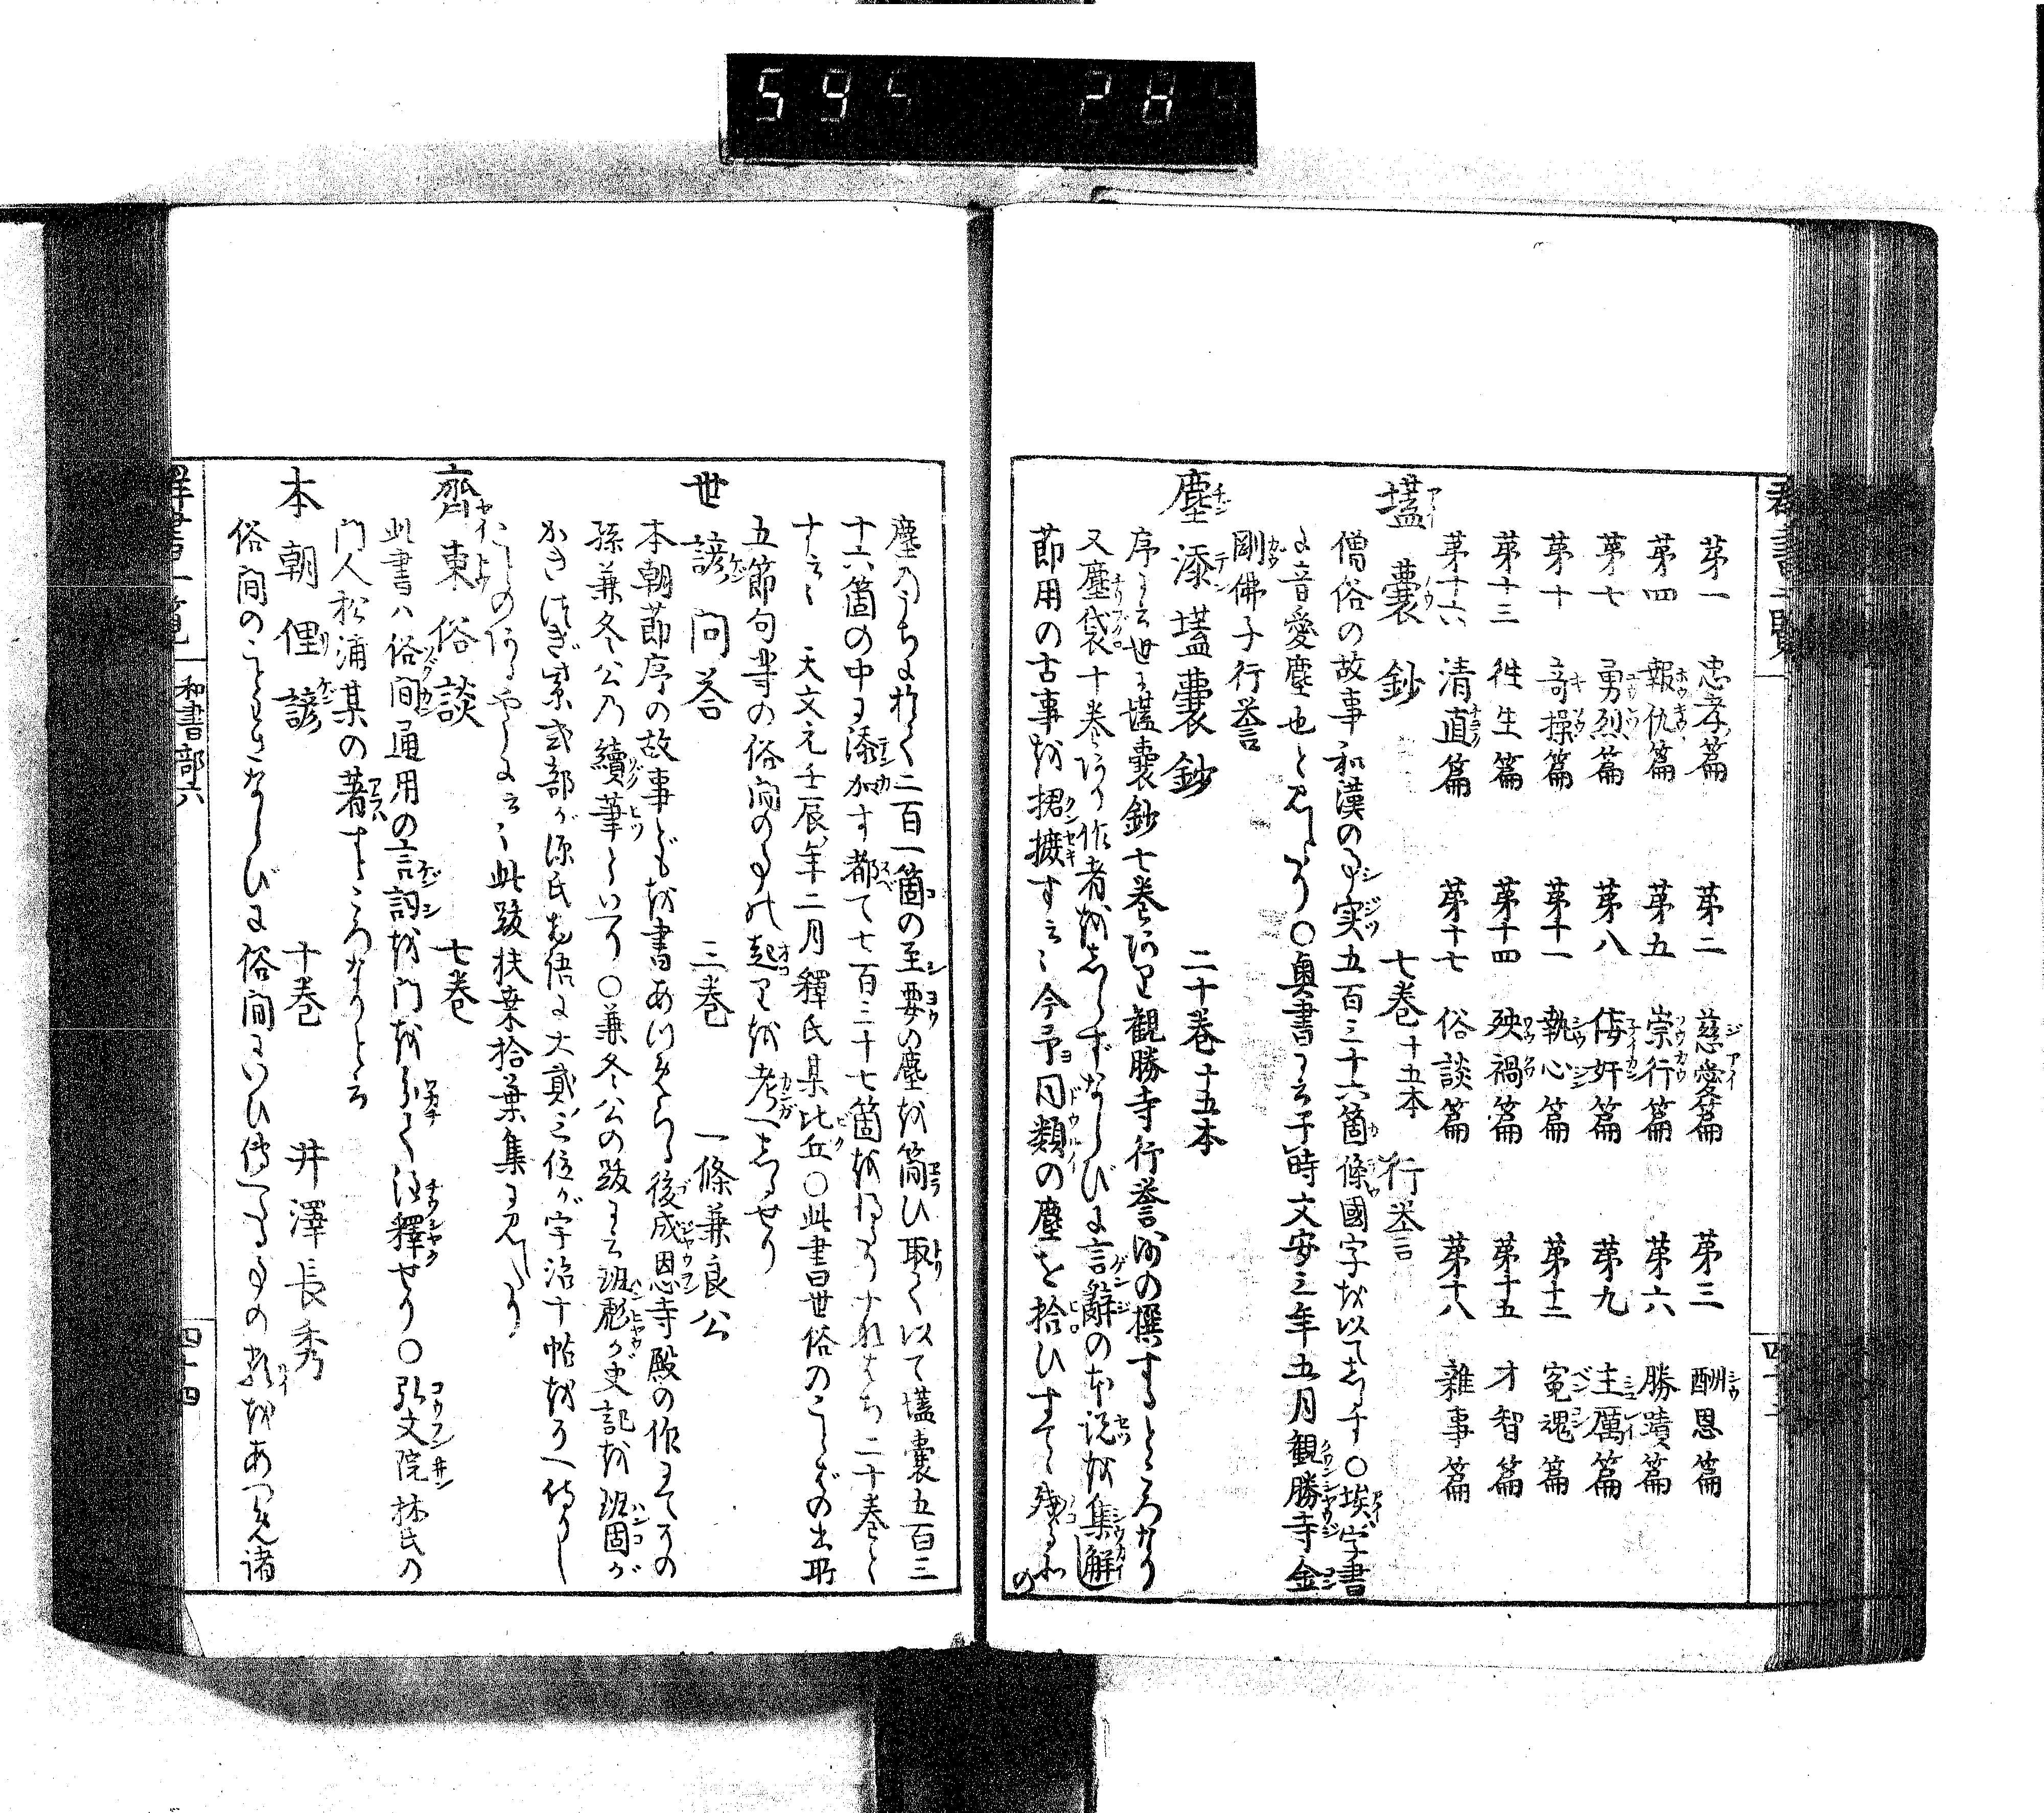 第一 忠孝篇 第二 慈愛篇 第三 酬恩篇
第四 報仇篇 第五 崇行篇 第六 勝蹟篇
第七 勇烈篇 第八 侫奸篇 第九 主厲篇
第十 奇操篇 第十一 執心篇 第十二 寃魂篇
第十三 徃生篇 第十四 殃禍篇 第十五 才智篇
第十六 清直篇 第十七 俗談篇 第十八 雜事篇
壒囊鈔 七巻十五本 行誉
僧俗の故事和漢の事実五百三十六箇條國字を以てしるす○埃字書
に音愛塵也と見へたり○奥書に云于時文安三年五月観勝寺金
剛佛子行誉
塵添壒囊鈔 二十巻十五本
序に云世に壒囊鈔七巻あり観勝寺行誉の撰するところなり
又塵袋十巻あり作者をしらずならびに言辭の本説を集解
節用の古事を捃摭す云々今予同類の塵を拾ひすてゝ残るの
塵のうちに於て二百一箇の至要の塵を簡ひ取て以て壒囊五百三
十六箇の中に添加す都て七百三十七箇を得たりすなはち二十巻と
す云々 天文元壬辰年二月釋氏某比丘○此書世俗のことばの出所
五節句等の俗間の事の起りを考へしるせり
世諺問答 三巻 一條兼良公
本朝節序の故事どもを書あつめらる後成恩寺殿の作にてその
孫兼冬公の續筆といへり○兼冬公の跋に云班彪が史記を班固が
かきつぎ紫式部が源氏物語に大貳三位が宇治十帖をそへ侍りし
ためしのあるやらんに云々此跋扶桒拾葉集に見へたり
齊東俗談 七巻
此書ハ俗間通用の言詞を門を分て注釋せり○弘文院林氏の
門人松浦某の著すところなりと云
本朝俚諺 十巻 井澤長秀
俗間のことわざならびに俗間にいひ傳へたる事の類をあつめ諸
群書一覧 和書部六 四十四